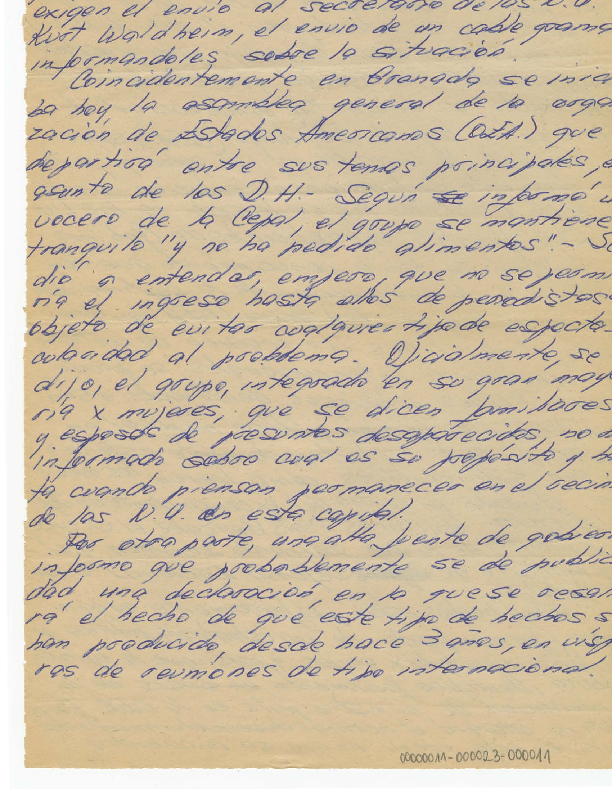 exigen el envío al secretario de las N.U.
Kurt Waldheim, el envio de un cable grama
informandoles sobre la situación.
Coincidentemente en Granada se inicia
ba hoy la asamblea general de la orga
zación de Estados Americanos (O.E.A.) que
departirá entre sus temas principales, e
asunto de los D.H.- Según se informó u
vocero de la Cepal, el grupo se mantiene
tranquilo "y no ha pedido alimentos".- Se
dió a entender, empero, que no se permi
ría el ingreso hasta ellos de periodistas
objeto de evitar cualquier tipo de especta-
cularidad al problema. Oficialmente, se
dijo, el grupo, integrado en su gran mayo
ría x mujeres, que se dicen familiares
y esposas de presuntos desaparecidos, no ha
informado sobre cual es su propósito y ha
ta cuando piensan permanecer en el recin
de las N.U. en esta capital.
Por otra parte, una alta fuente de gobier
informo que probablemente se de public
dad una declaración, en la que se resa
rá el hecho de que este tipo de hechos s
han producido, desde hace 3 años, en vísp
ras de reuniones de tipo internacional.
00000011-000023-000011